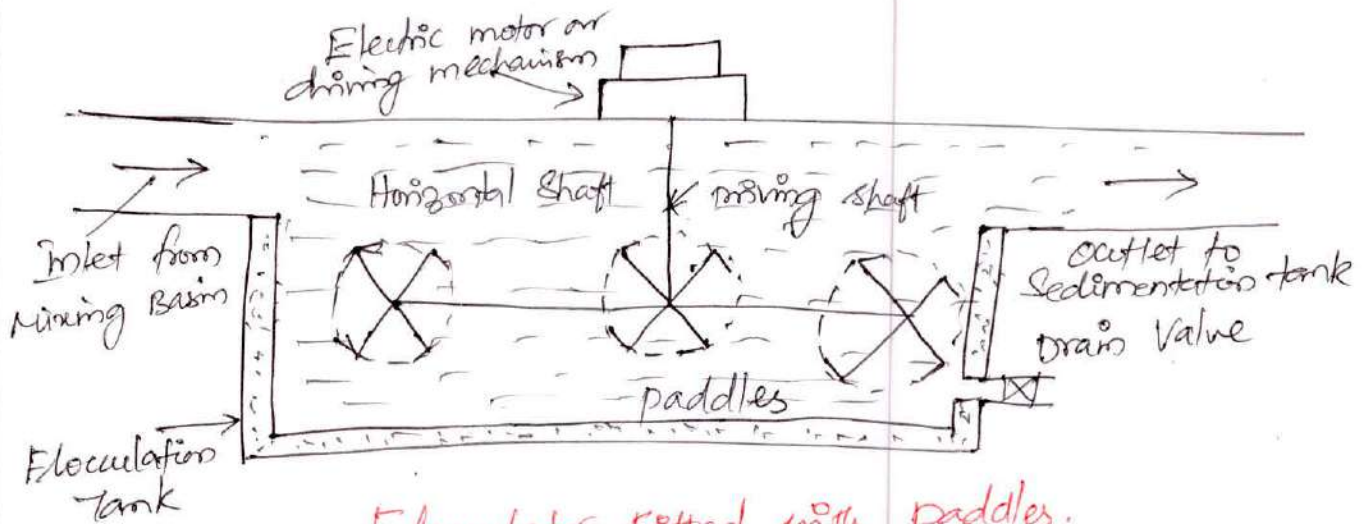 Electric motor or
driving mechanism
Horizontal Shaft
Driving shaft
Inlet from
Mixing Basin
Outlet to
Sedimentation tank
Drain Valve
paddles
Flocculation
Tank
Flocculator fitted with paddles.